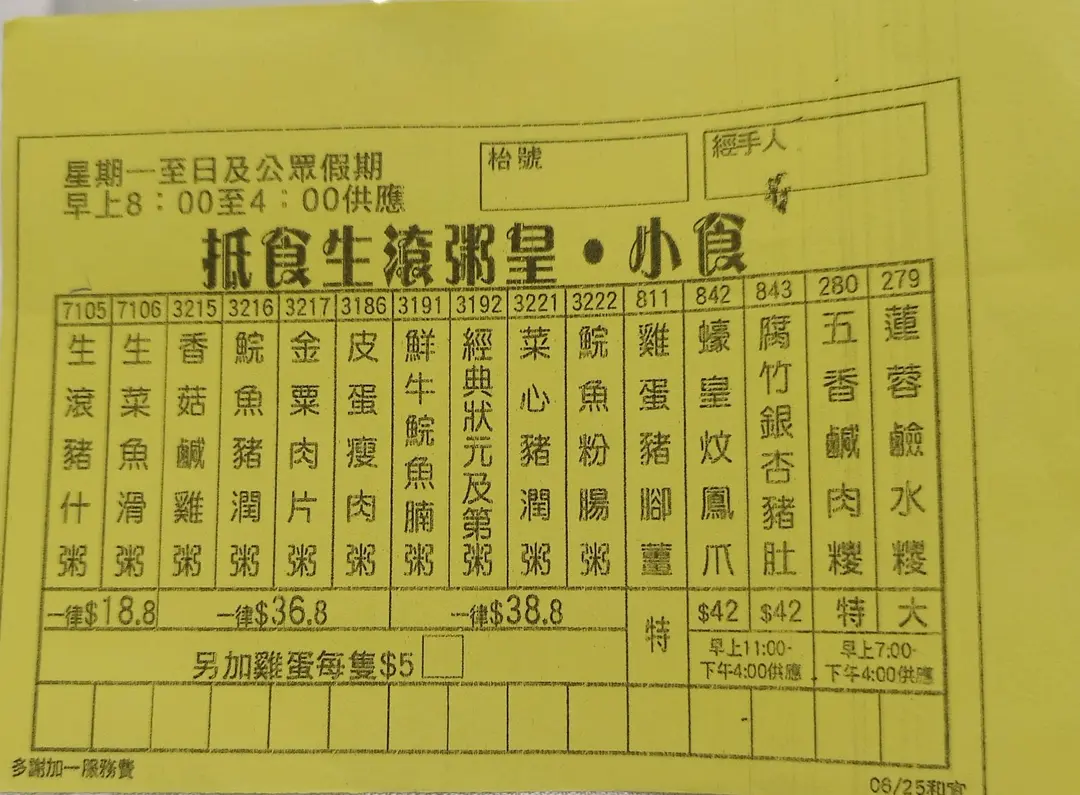 星期一至日及公眾假期
早上8：00至4：00供應
枱號
經手人
抵食生滾粥皇•小食
7105 7106 3215 3216 3217 3186 3191 3192 3221 3222 811 842 843 280 279
生滾豬什粥
生菜魚滑粥
香菇鹹雞粥
鯇魚豬潤粥
金粟肉片粥
皮蛋瘦肉粥
鮮牛鯇魚腩粥
經典狀元及第粥
菜心豬潤粥
鯇魚粉腸粥
雞蛋豬腳薑
蠔皇炆鳳爪
腐竹銀杏豬肚
五香鹹肉糉
蓮蓉鹼水糉
一律$18.8 一律$36.8 一律$38.8 特 $42 $42 特 大
早上11:00-
下午4:00供應
早上7:00-
下午4:00供應
另加雞蛋每隻$5
多謝加一服務費
06/25和宜